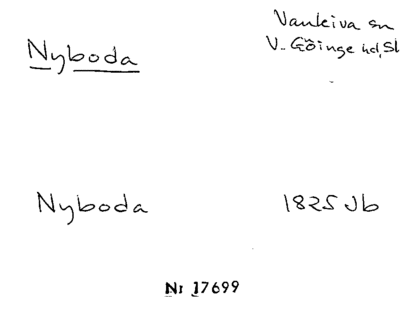 Nyboda
Vankiva sn
V. Göinge hd, Sk
Nyboda
1825 Jb
Nr 17699